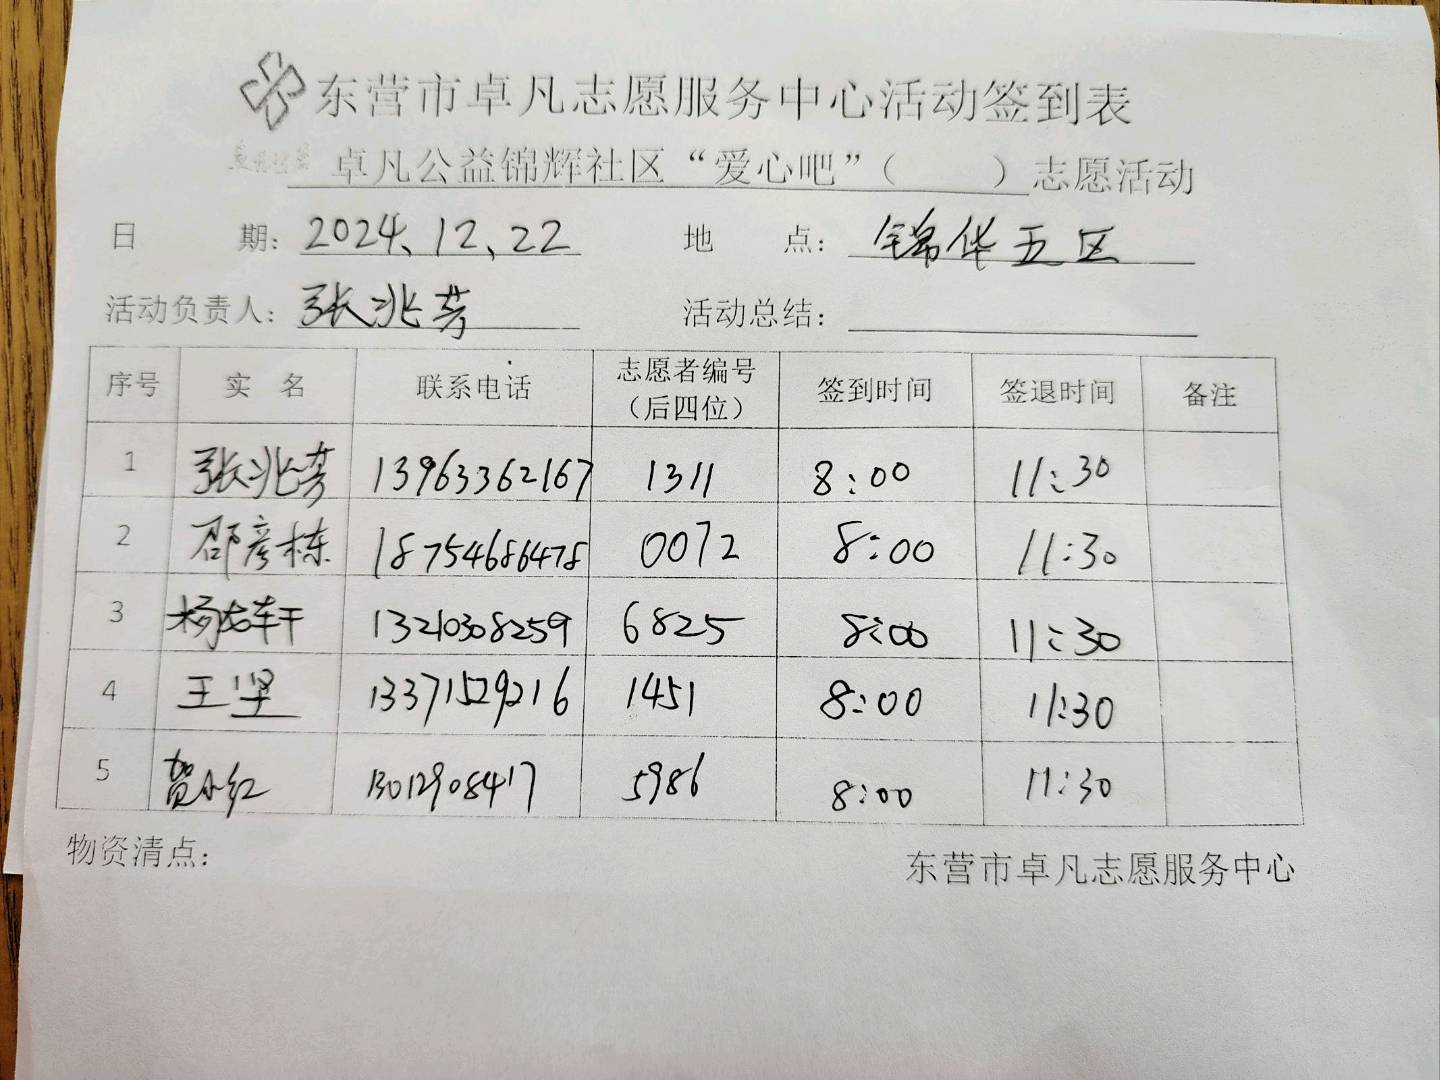 东营市卓凡志愿服务中心活动签到表
卓凡公益锦辉社区“爱心吧”（ ）志愿活动
日 期：2024、12、22 地 点：锦华五区
活动负责人：张兆芳 活动总结：
序号 实 名 联系电话 志愿者编号（后四位） 签到时间 签退时间 备注
1 张兆芳 13963362167 1311 8:00 11:30
2 邵彦栋 18754686478 0072 8:00 11:30
3 杨 13210308259 6825 8:00 11:30
4 王坚 13371529216 1451 8:00 11:30
5 贺小红 13012908417 5986 8:00 11:30
物资清点：
东营市卓凡志愿服务中心